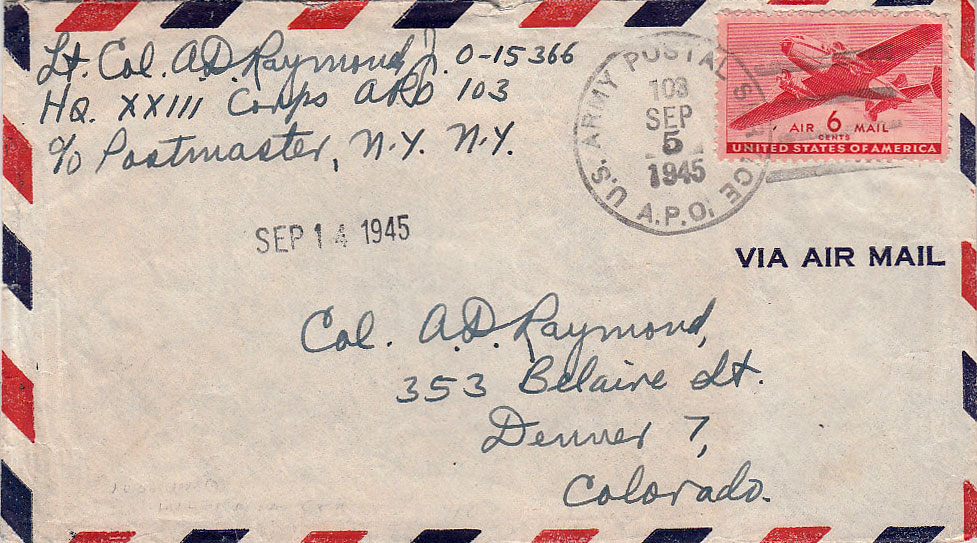 Lt. Col. A.D. Raymond Jr. O-15366
HQ. XXIII Corps APO 103
c/o Postmaster, N.Y. N.Y.
U.S. ARMY POSTAL SERVICE
103
SEP
5
1945
A.P.O.
AIR 6 MAIL
CENTS
UNITED STATES OF AMERICA
SEP 14 1945
VIA AIR MAIL
Col. A.D. Raymond,
353 Belaire St.
Denver 7,
Colorado.